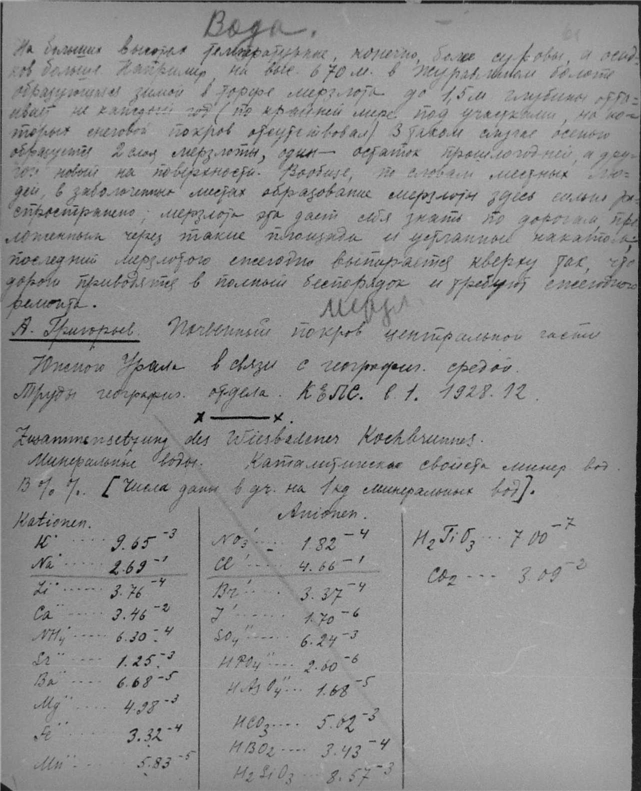 Вода.
На больших высотах температурные, конечно, более суровы, а осад-
ков больше. Например, на выс. 670 м. в Журавлином болоте
образующаяся зимой в торфе мерзлота до 1,5 м. глубины отта-
ивает не каждый год (по крайней мере под участками, на ко-
торых снеговой покров отсутствовал) В таком случае осенью
образуется 2 слоя мерзлоты, один — остаток прошлогодней, а дру-
гой новой на поверхности. Вообще, по словам местных лю-
дей, в заболоченных местах образование мерзлоты здесь сильно ра
спространено; мерзлота эта дает себя знать по дорогам про
ложенным через такие площади и устланным накатом:
последний мерзлотою ежегодно выпирается кверху так, что
дороги приводятся в полный беспорядок и требуют ежегодного
ремонта.
мерзл.
А. Григорьев. Почвенный покров центральной части
Южного Урала в связи с географич. средой.
Труды географич. отдела. КЕПС. в 1. 1928. 12.
x — x.
Zusammensetzung des Wiesbadener Kochbrunnes.
Минеральные воды. Каталитическ свойства минер вод.
В %%. [Числа даны в гр. на 1 кg минеральных вод].
Kationen.
K˙ 9.65⁻³
Na˙ 2.69⁻¹
Li˙ 3.76⁻⁴
Ca¨ 3.46⁻²
NH₄˙ 6.30⁻⁴
Sr¨ 1.25⁻³
Ba¨ 6.68⁻⁵
Mg¨ 4.98⁻³
Fe¨ 3.32⁻⁴
Mn¨ 5.83⁻⁵
Anionen.
NO₃' 1.82⁻⁴
Cl' 4.66⁻¹
Br' 3.37⁻⁴
J' 1.70⁻⁶
SO₄'' 6.24⁻³
HPO₄'' 2.60⁻⁶
HAsO₄'' 1.68⁻⁵
HCO₃' 5.02⁻³
HBO₂ 3.43⁻⁴
H₂SiO₃ 8.57⁻³
H₂TiO₃ 7.00⁻⁷
CO₂ 3.09⁻²